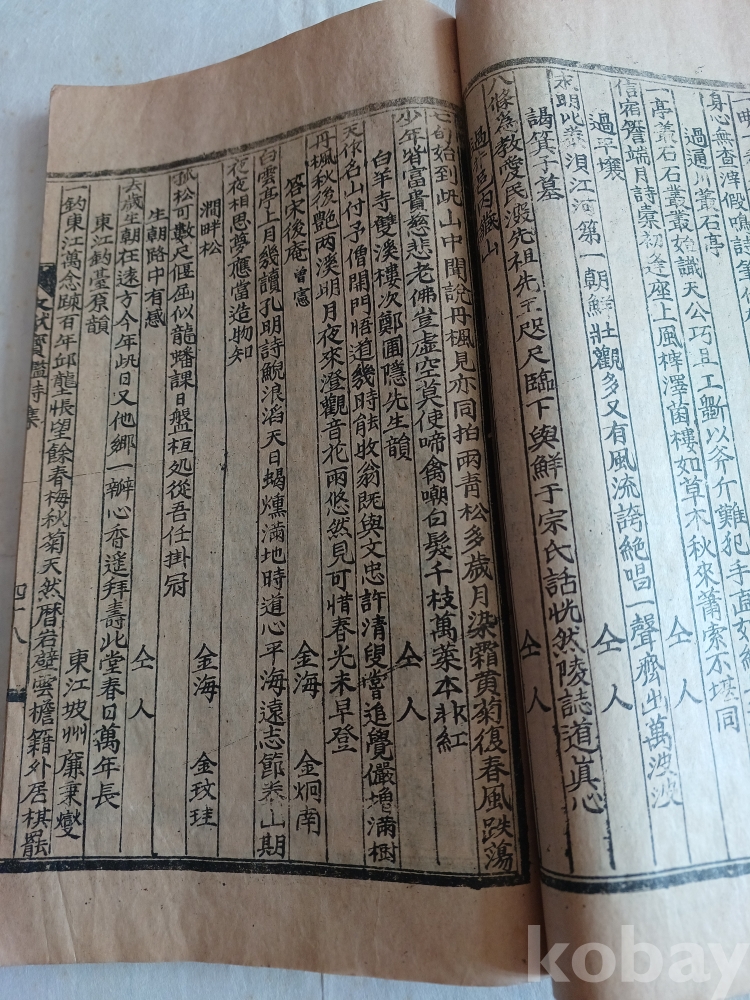 身心無査滓假鳴詩
過通川叢石亭 仝人
一亭叢石石叢叢始識天公巧且工斷以斧斤難犯手面如
信宿簷端月詩棄初逢座上風梓澤茵樓如草木秋來蕭索不堪同
過平壤 仝人
永明此泰浿江河第一朝鮮壯觀多又有風流誇絶唱一聲齊出萬波波
謁箕子墓 仝人
八條爲教愛民溵先祖先王咫尺臨下與鮮于宗氏話恍然陵誌道眞心
過
七旬始到此山中聞說丹楓見亦同拍兩靑松多歲月染霜黄菊復春風跌蕩
少年皆富貴慈悲老佛豈虛空莫使啼禽嘲白髮千枝萬葉本非紅
白羊寺雙溪樓次鄭圃隱先生韻 仝人
天作名山付予僧閉門悟道幾時能收翁旣與文忠許淸叟嘗追覺儼增滿樹
丹楓秋後艶兩溪明月夜來澄觀音花雨悠然見可惜春光未早登
答宋後庵曾憲 金海 金炯南
白雲亭上月幾讀孔明詩鯢浪滔天日蝎燻滿地時道心平海遠志節泰山期
夜夜相思夢應當造物知
澗畔松 金海 金玟珪
孤松可數尺偃屈似龍蟠課日盤桓処從吾任掛冠
生朝路中有感 仝人
去歲生朝在遠方今年此日又他鄕一瓣心香遥拜壽北堂春日萬年長
東江釣臺原韻 東江坡州廉秉燮
一釣東江萬念疎百年邱壟悵望餘春梅秋菊天然曆岩壁雲檐籍外居棋罷
文獻寶鑑詩集 四十八
kobay